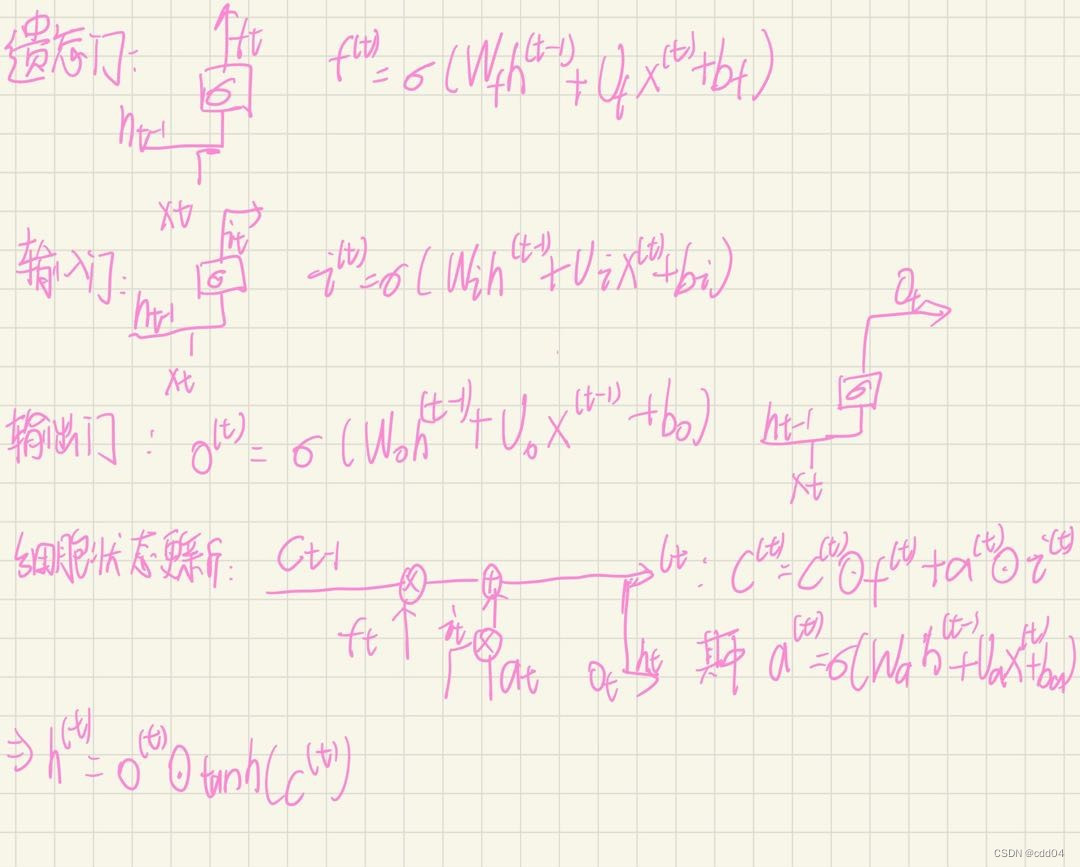 遗忘门: ft σ ht-1 xt f^(t) = σ(W_f h^(t-1) + U_f x^(t) + b_f)
输入门: it σ ht-1 xt i^(t) = σ(W_i h^(t-1) + U_i x^(t) + b_i)
输出门: o^(t) = σ(W_o h^(t-1) + U_o x^(t-1) + b_o) Ot σ ht-1 xt
细胞状态更新: Ct-1 ⊗ ⊕ Ct: C^(t) = C^(t) ⊙ f^(t) + a^(t) ⊙ i^(t)
ft it ⊗ at Ot ht 其中 a^(t) = σ(W_a h^(t-1) + U_a x^(t) + b_a)
⇒ h^(t) = o^(t) ⊙ tanh(C^(t))
CSDN @cdd04